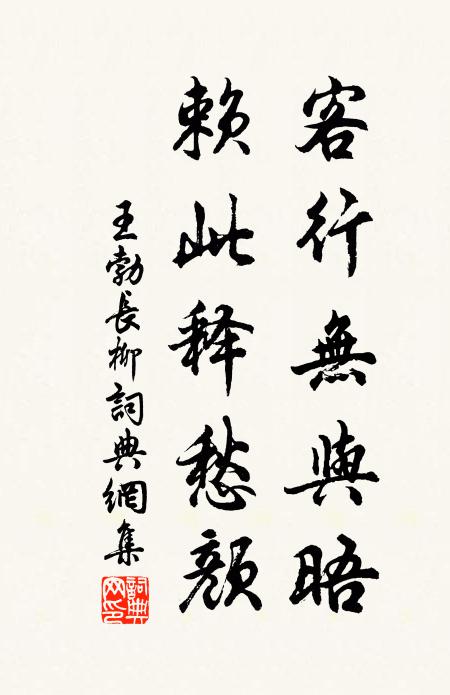 客行無與晤
賴此释愁顏
王勃長柳詞典網集
詞典網印